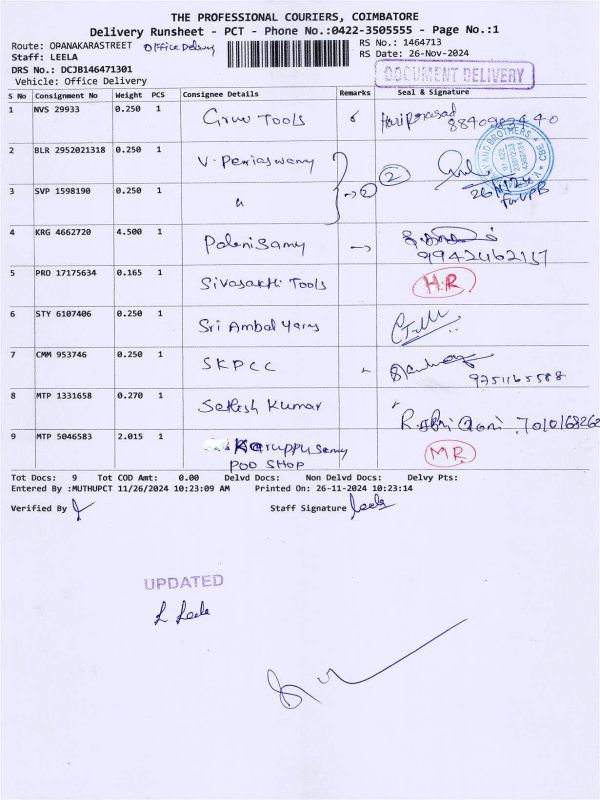 THE PROFESSIONAL COURIERS, COIMBATORE
Delivery Runsheet - PCT - Phone No.:0422-3505555 - Page No.:1
Route: OPANAKARASTREET Office Delivery RS No.: 1464713
Staff: LEELA RS Date: 26-Nov-2024
DRS No.: DCJB146471301 DOCUMENT DELIVERY
Vehicle: Office Delivery
S No Consignment No Weight PCS Consignee Details Remarks Seal & Signature
1 NVS 29933 0.250 1 Tools Hariprasad
2 BLR 2952021318 0.250 1 V. Periaswamy 2
3 SVP 1598190 0.250 1 " 2 26/11/24
For VPB
4 KRG 4662720 4.500 1 Palanisamy 9942462157
5 PRO 17175634 0.165 1 Sivasakthi Tools H.R
6 STY 6107406 0.250 1 Sri Ambal Yarns
7 CMM 953746 0.250 1 SKPCC 9751165588
8 MTP 1331658 0.270 1 Sathish Kumar
9 MTP 5046583 2.015 1 Karuppusamy MR
POO SHOP
Tot Docs: 9 Tot COD Amt: 0.00 Delvd Docs: Non Delvd Docs: Delvy Pts:
Entered By :MUTHUPCT 11/26/2024 10:23:09 AM Printed On: 26-11-2024 10:23:14
Verified By Staff Signature Leela
UPDATED
L Leela